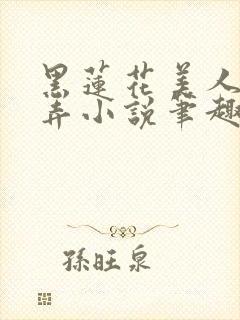 黑蓮花美人
弄小說筆趣
孫旺泉